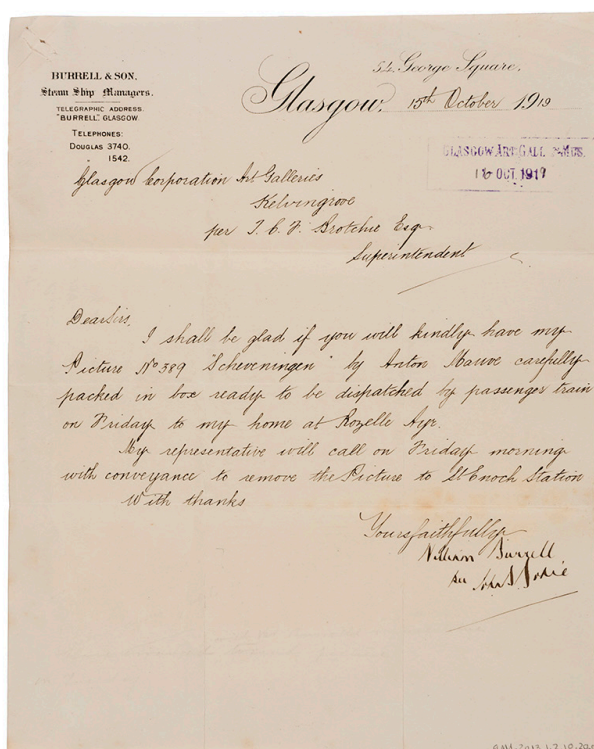 54 George Square.
BURRELL & SON.
Steam Ship Managers.
TELEGRAPHIC ADDRESS.
"BURRELL" GLASGOW.
TELEPHONES:
DOUGLAS 3740.
1542.
Glasgow, 15th October 1919
GLASGOW ART GALL. & MUS.
16 OCT. 1919
Glasgow Corporation Art Galleries
Kelvingrove
per T. C. F. Brotchie Esq
Superintendent
Dear Sirs,
I shall be glad if you will kindly have my
Picture No 389 "Scheveningen" by Anton Mauve carefully
packed in box ready to be dispatched by passenger train
on Friday to my home at Rozelle Ayr.
My representative will call on Friday morning
with conveyance to remove the Picture to St Enoch Station
With thanks
Yours faithfully
William Burrell
per